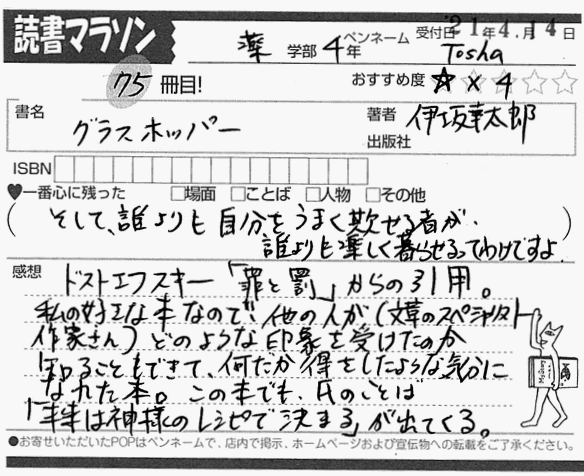 読書マラソン
薬 学部 4年
ペンネーム Tosha
受付日 21年4月14日
75 冊目!
おすすめ度 ☆ × 4 ☆☆
書名 グラスホッパー
著者 伊坂幸太郎
出版社
ISBN
♥一番心に残った □場面 □ことば □人物 □その他
(そして、誰よりも自分をうまく欺せる者が、
誰よりも楽しく暮らせるってわけですよ)
感想 ドストエフスキー「罪と罰」からの引用。
私の好きな本なので、他の人が(文章のスペシャリスト
作家さん)どのような印象を受けたのか
知ることもできて、何だか得をしたような気分に
なれた本。この本でも、氏のことば
「 は神様のレシピで決まる」が出てくる。
●お寄せいただいたPOPはペンネームで、店内で掲示、ホームページおよび宣伝物への転載をご了承ください。